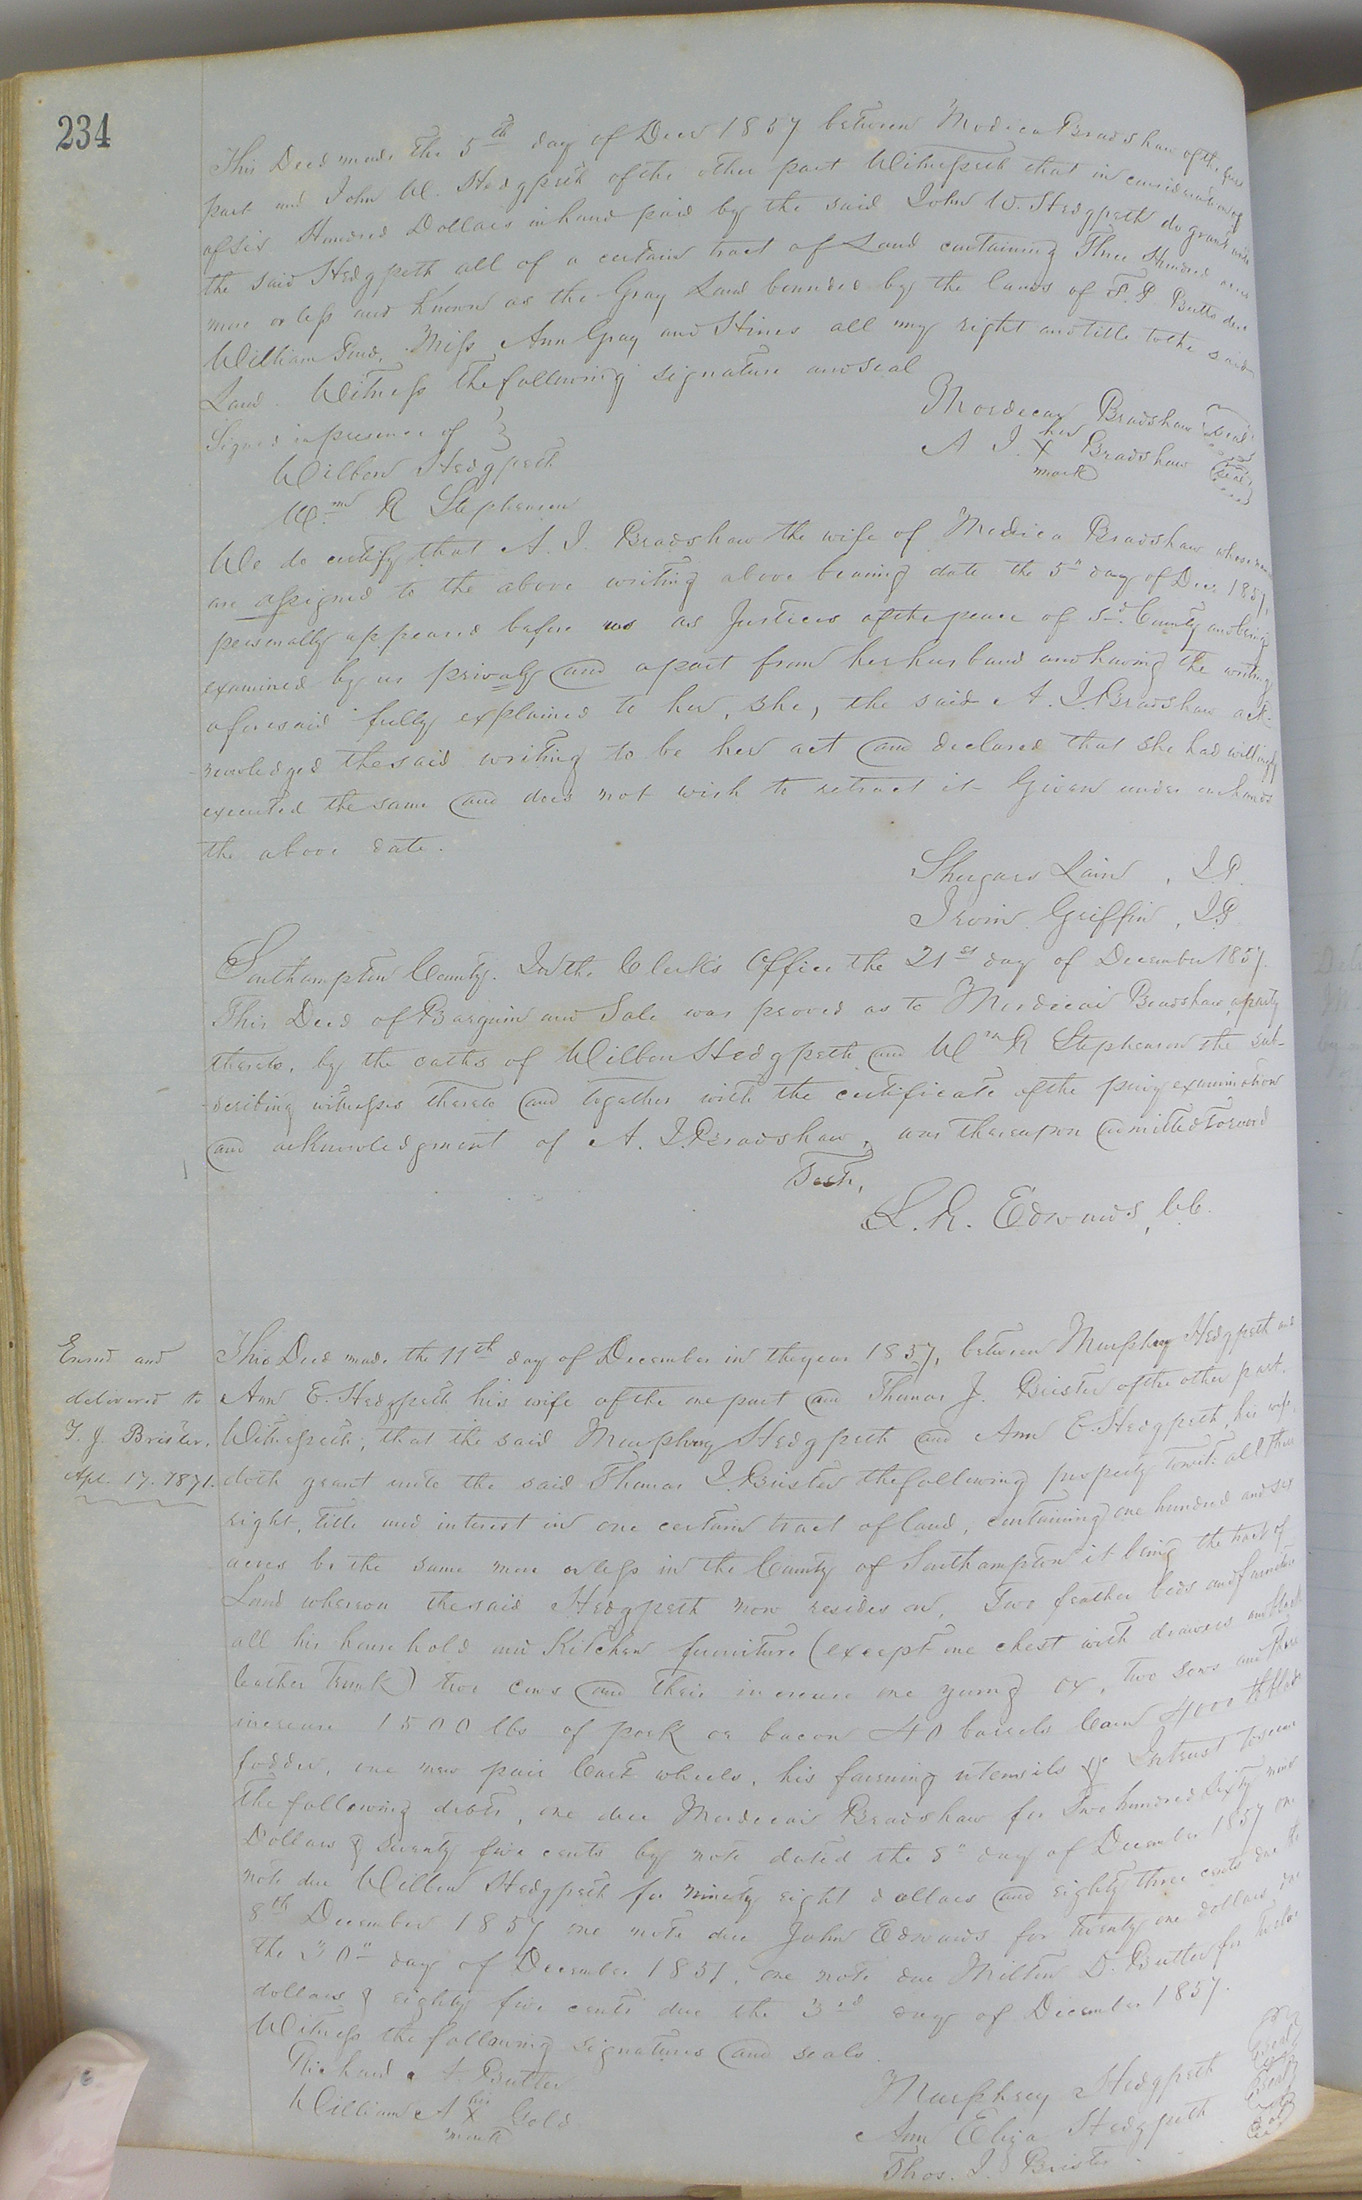 234
This Deed made the 5th day of Decr 1857 between Modica Bradshaw of the
part and John W. Hedgpeth of the other part Witnesseth that in consideration of
of Six Hundred Dollars in hand paid by the said John W. Hedgpeth do grant unto
the said Hedgpeth all of a certain tract of Land containing Three Hundred acres
more or less and known as the Gray Land bounded by the lands of Butts
William Miss Ann Gray and Hines all my right and title to the said
Land. Witness the following signature and seal
Mordecai Bradshaw Seal
A. J. her X mark Bradshaw Seal
Signed in presence of }
Wilben Hedgpeth
Wm R Stephenson
We do certify that A. J. Bradshaw the wife of Modica Bradshaw whose
are assigned to the above writing above bearing date the 5" day of Dec. 1857,
personally appeared before us as Justices of the peace of Sd. County and being
examined by us privaly and apart from her husband and having the writing
aforesaid fully explained to her, she, the said A. J. Bradshaw ack-
nowledged the said writing to be her act and declared that she had willingly
executed the same and does not wish to retract it Given under our hands
the above date.
Shugars Lain, J.P.
Irvin Griffin, J.P
Southampton County. In the Clerk's Office the 21st day of December 1857.
This Deed of Bargain and Sale was proved as to Mordicai Bradshaw, a party
thereto, by the oaths of Wilben Hedgpeth and Wm R Stephenson the sub-
scribing witnesses thereto and together with the certificate of the privy examination
and acknowledgment of A. J. Bradshaw, was thereupon admitted to record
Teste,
L. R. Edwards, C.C.
Exmd and
delivered to
T. J. Brister.
Apl. 17. 1871.
This Deed made the 11th day of December in the year 1857, between Murphey Hedgpeth and
Ann E. Hedgpeth his wife of the one part and Thomas J. Brister of the other part.
Witnesseth; that the said Murphey Hedgpeth and Ann E. Hedgpeth, his wife
doth grant unto the said Thomas J. Brister the following property towit: all their
right, title and interest in one certain tract of land, containing one hundred and six
acres be the same more or less in the County of Southampton it being the tract of
Land whereon the said Hedgpeth now resides on, Two feather beds and furniture
all his household and Kitchen furniture (except one chest with drawers and black
leather trunk) two cows and their increase one young ox, two sows and their
increase 1500 lbs of pork or bacon 40 barrels Corn 4000 lb blade
fodder, one new pair Cart wheels, his farming utensils &c In trust to secure
the following debts, one due Mordecai Bradshaw for Two hundred Sixty nine
Dollars & seventy five cents by note dated the 8" day of December 1857 one
note due Wilben Hedgpeth for ninety eight dollars and eighty three cents due the
8th December 1857 one note due John Edwards for twenty one dollars due
the 30" day of December 1857, one note due Milton D. Butler for twelve
dollars & eighty five cents due the 3rd day of December 1857.
Witness the following signatures and seals.
Richard A Butler
William A his X mark Gold
Murphrey Hedgpeth Seal
Ann Eliza Hedgpeth Seal
Thos. J. Brister Seal